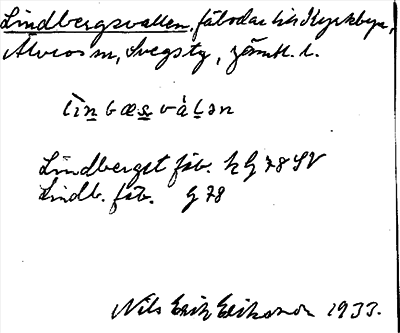 Lindbergsvallen, fäbodar till Kyrkbyn,
Älvros sn, Svegs tg, Jämtl. l.
lìnbæsvàlən
Lindberget fäb. k G 78 SV
Lindb. fäb. G 78
Nils Erik Eriksson 1933.